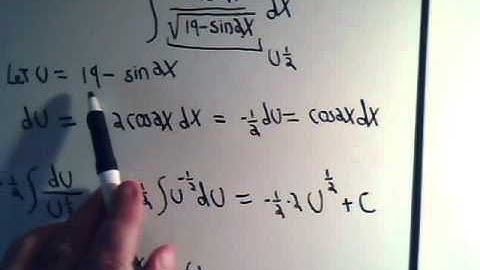 ∫ / √(19 - sin2x) dx
U^½
Let U = 19 - sin2x
du = 2cos2x dx = -½du = cos2x dx
-½ ∫ du/U^½ ½ ∫ U^-½ du = -½ · 2 U^½ + C